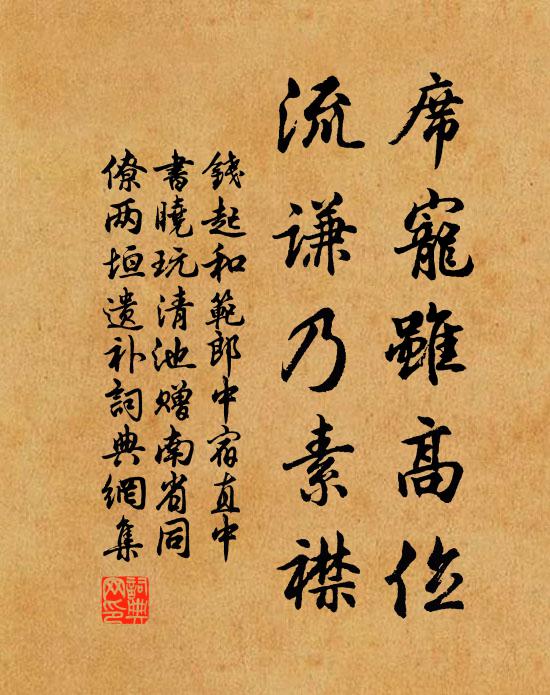 席寵雖高位
流謙乃素襟
錢起和範郎中宿直中
書曉玩清池贈南省同
僚两垣遺补詞典網集
詞典
网印